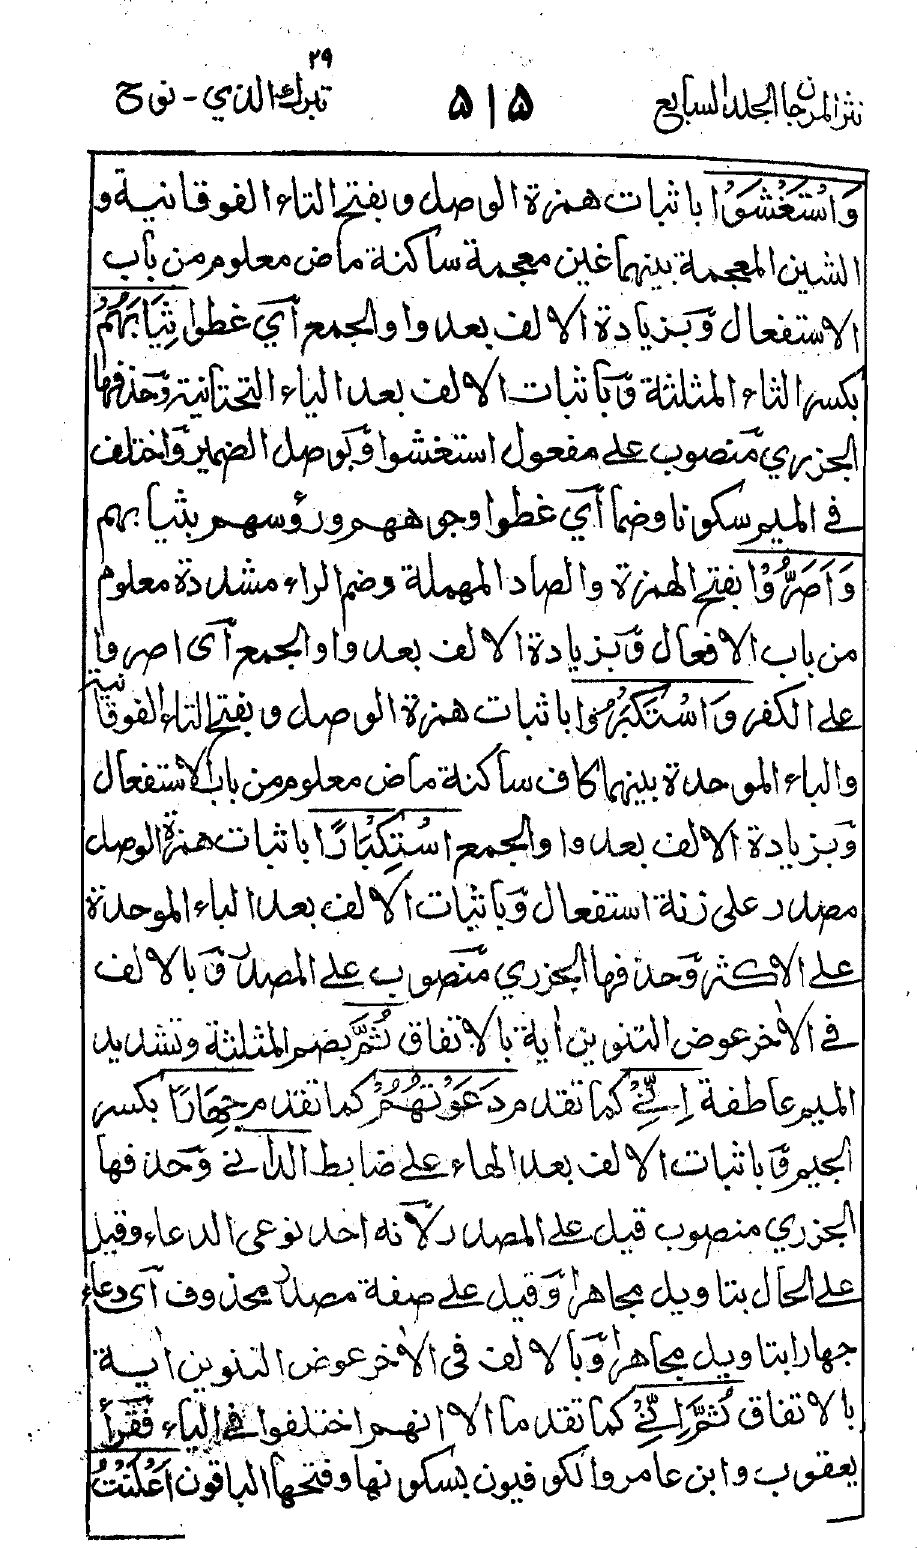 نثر المرجان الجلد السابع
٥١٥
٢٩
تبرك الذي - نوح
وَاسْتَغْشَوْا باثبات همزة الوصل وبفتح التاء الفوقانية و
الشين المعجمة بينهما غين معجمة ساكنة ماض معلوم من باب
الاستفعال وبزيادة الالف بعد واو الجمع آي غطوا ثِيَابَهُمْ
بكسر الثاء المثلثة وباثبات الالف بعد الياء التحتانية وحذفها
الجزري منصوب على مفعول استغشوا وبوصل الضمير واختلف
في الميم سكونا وضما آي غطوا وجوههم ورؤسهم بثيابهم
وَاَصَرُّوْا بفتح الهمزة والصاد المهملة وضم الراء مشددة معلوم
من باب الافعال وبزيادة الالف بعد واو الجمع آى اصروا
على الكفر وَاسْتَكْبَرُوْا باثبات همزة الوصل وبفتح التاء الفوقانية
والباء الموحدة بينهما كاف ساكنة ماض معلوم من باب الاستفعال
وبزيادة الالف بعد واو الجمع اسْتِكْبَارًا باثبات همزة الوصل
مصدر على زنة استفعال وباثبات الالف بعد الباء الموحدة
على الاكثر وحذفها الجزري منصوب على المصدر وبالالف
في الاٰخر عوض التنوين اٰية بالاتفاق ثُمَّ بضم المثلثة وتشديد
الميم عاطفة اِنِّيْ كما تقدم دَعَوْتُهُمْ كما تقدم جِهَارًا بكسر
الجيم وباثبات الالف بعد الهاء على ضابط الداني وحذفها
الجزري منصوب قيل على المصدر لآنه احد نوعى الدعاء وقيل
على الحال بتاويل مجاهرا وقيل على صفة مصدر محذوف آى دعاء
جهارا بتاويل مجاهرا وبالالف فى الاٰخر عوض التنوين اٰية
بالاتفاق ثُمَّ اِنِّيْ كما تقدما الا انهم اختلفوا في الياء فقرأ
يعقوب وابن عامر والكوفيون بسكونها وفتحها الباقون اَعْلَنْتُ